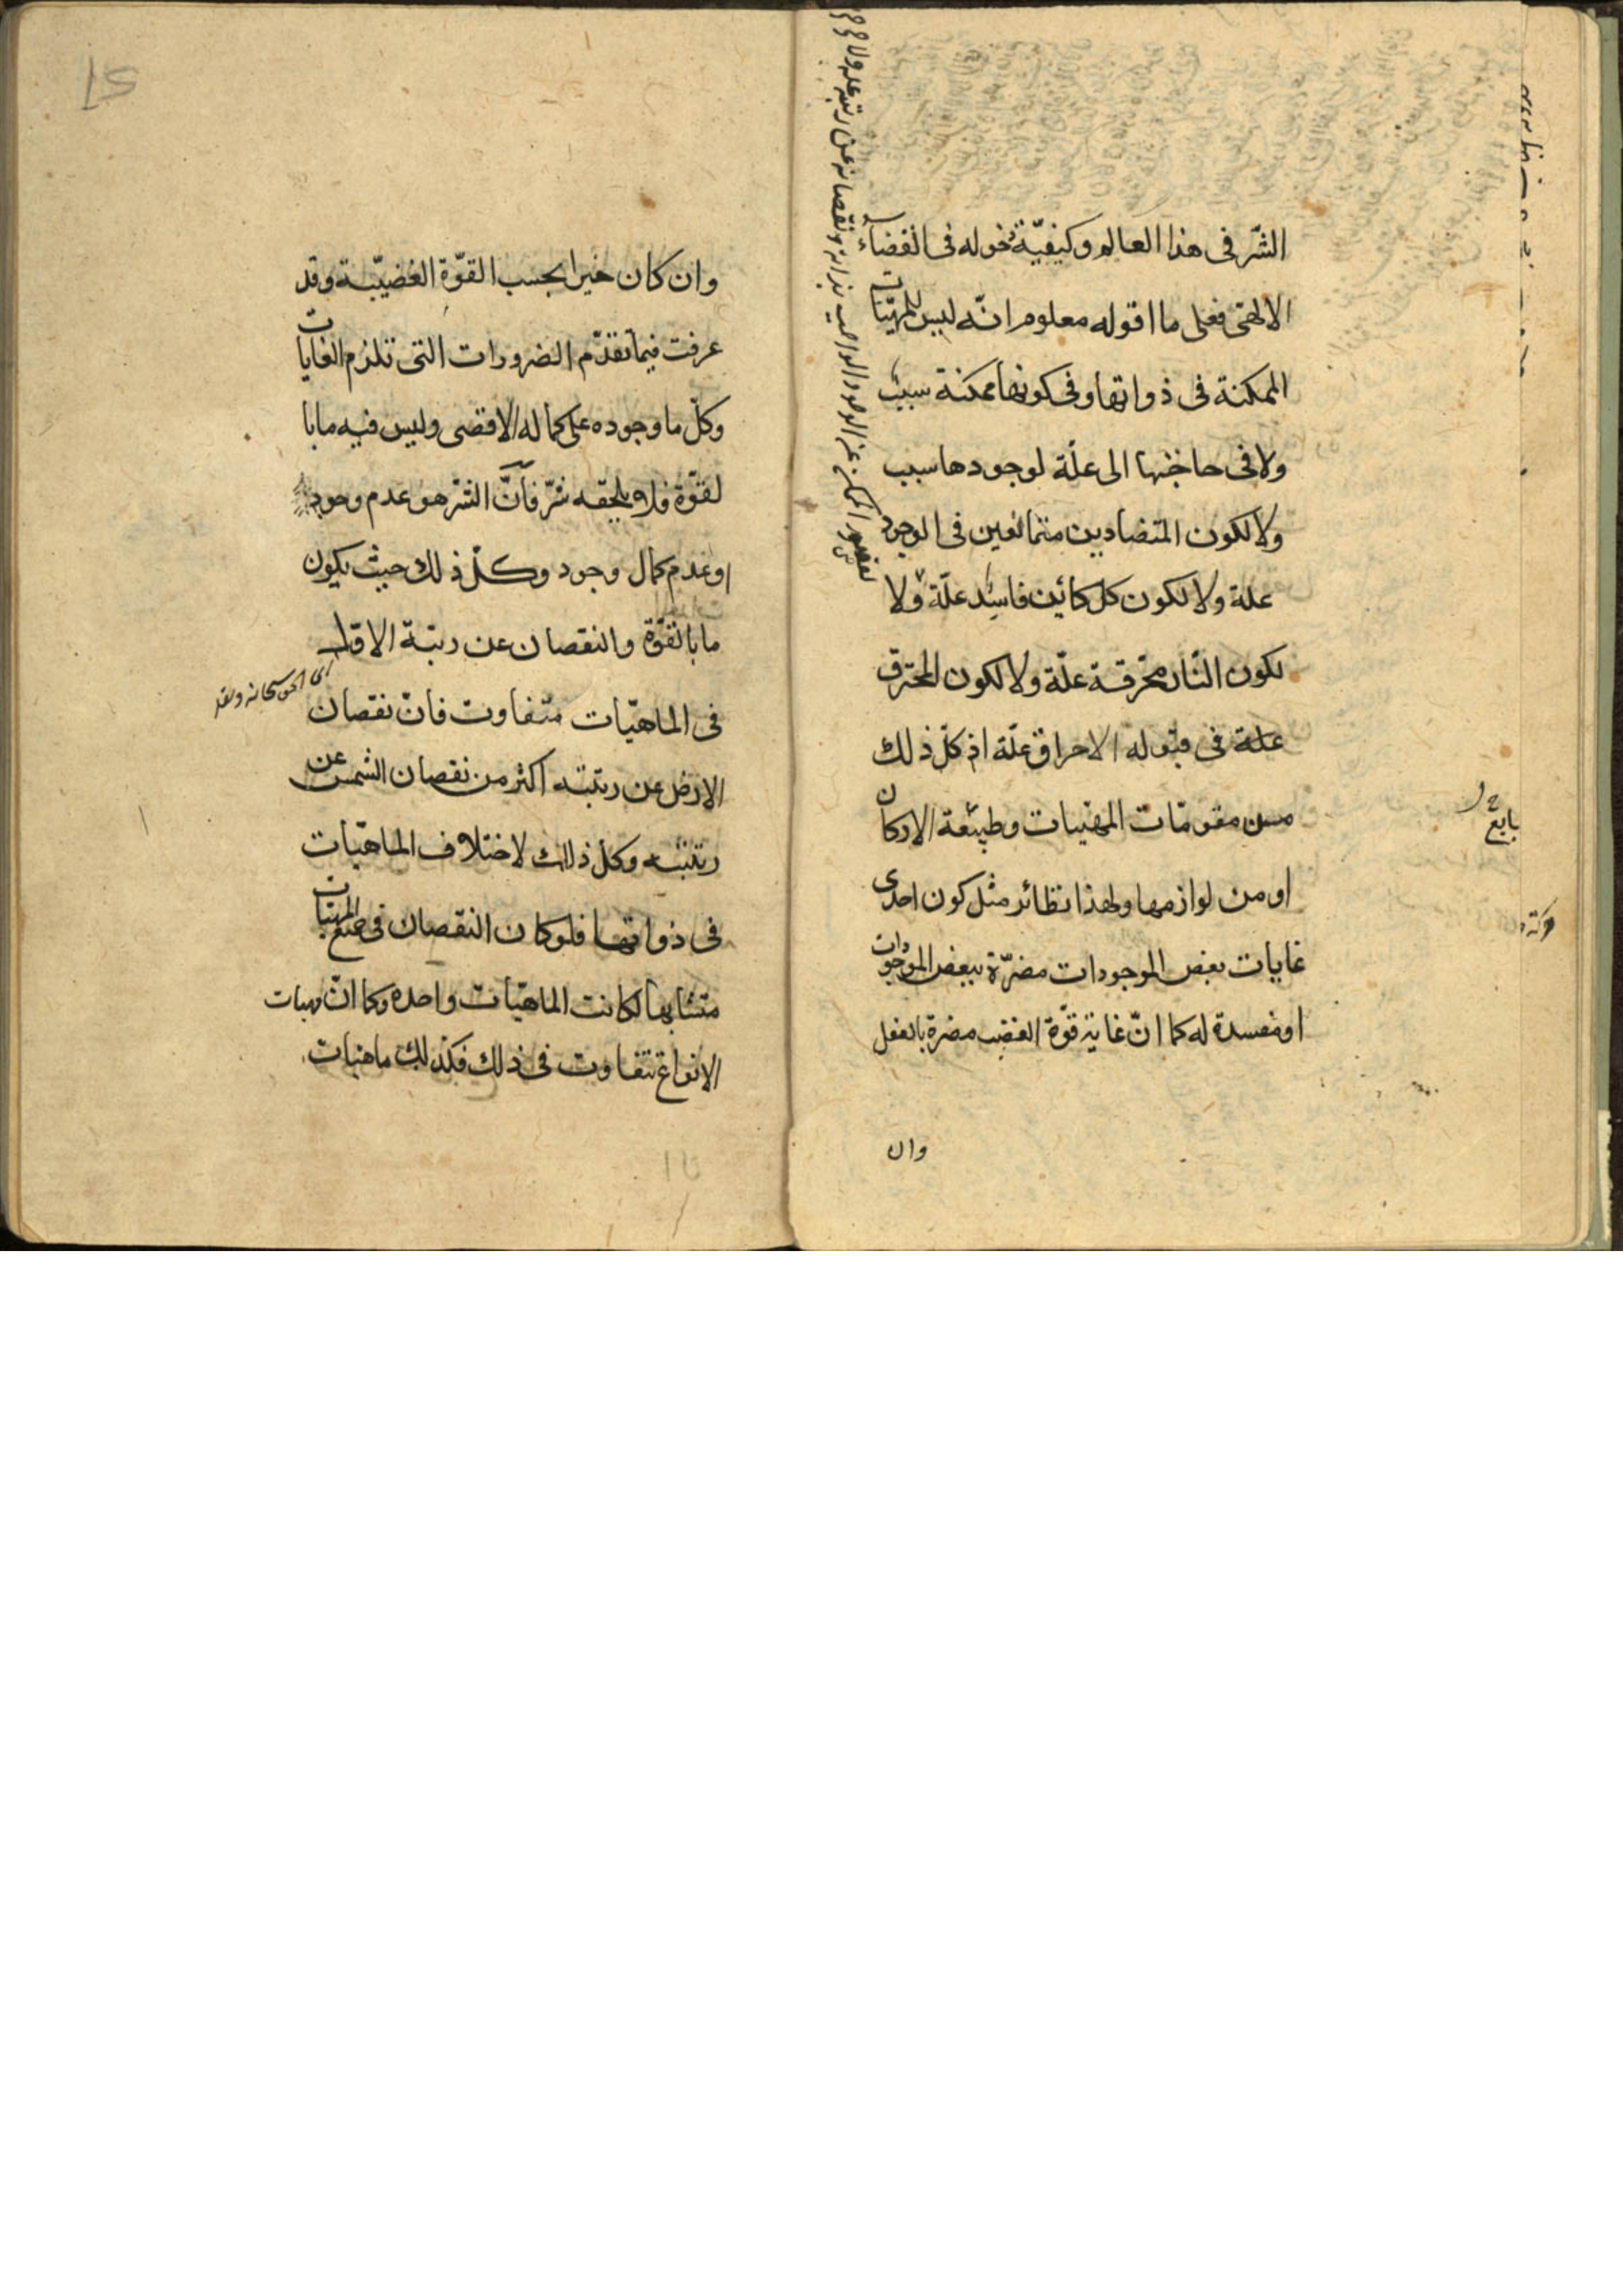 الشّر فى هذا العالم وكيفيّة دخوله فى القضاء
الالهى فعلى ما اقوله معلوم انّه ليس للمهيّات
الممكنة فى ذواتها وفى كونها ممكنة سبب
ولا فى حاجتها الى علّة لوجودها سبب
ولا لكون المتضادين متمانعين فى الوجود
علة ولا لكون كل كائن فاسد علّة ولا
لكون النّار محرقة علّة ولا لكون المحترق
علة فى قبوله الاحراق علّة اذ كلّ ذلك
من مقومّات المهيات وطبيعة الاركان
او من لوازمها ولهذا نظائر مثل كون احدى
غايات بعض الموجودات مضرّة ببعض الموجودات
او مفسدة له كما انّ غاية قوّة الغضب مضرة بالعقل
وان
وان كان خيرا بحسب القوّة الغضبيّة وقد
عرفت فيما تقدّم الضرورات التى تلزم الغايات
وكلّ ما وجوده على كماله الاقصى وليس فيه ما با
لقوّة فلا يلحقه شرّ فانّ الشر هو عدم وجود
او عدم كمال وجود وكلّ ذلك حيث يكون
ما بالقوّة والنقصان عن رتبة الاول
اى الحق سبحانه وتعه
فى الماهيّات متفاوت فانّ نقصان
الارض عن رتبته اكثر من نقصان الشمس عن
رتبته وكل ذلك لاختلاف الماهيّات
فى ذواتها فلو كان النقصان فى جميع المهيّات
متشابها لكانت الماهيّات واحده وكما انّ مهيات
الانواع تتفاوت فى ذلك فكذلك ماهيات